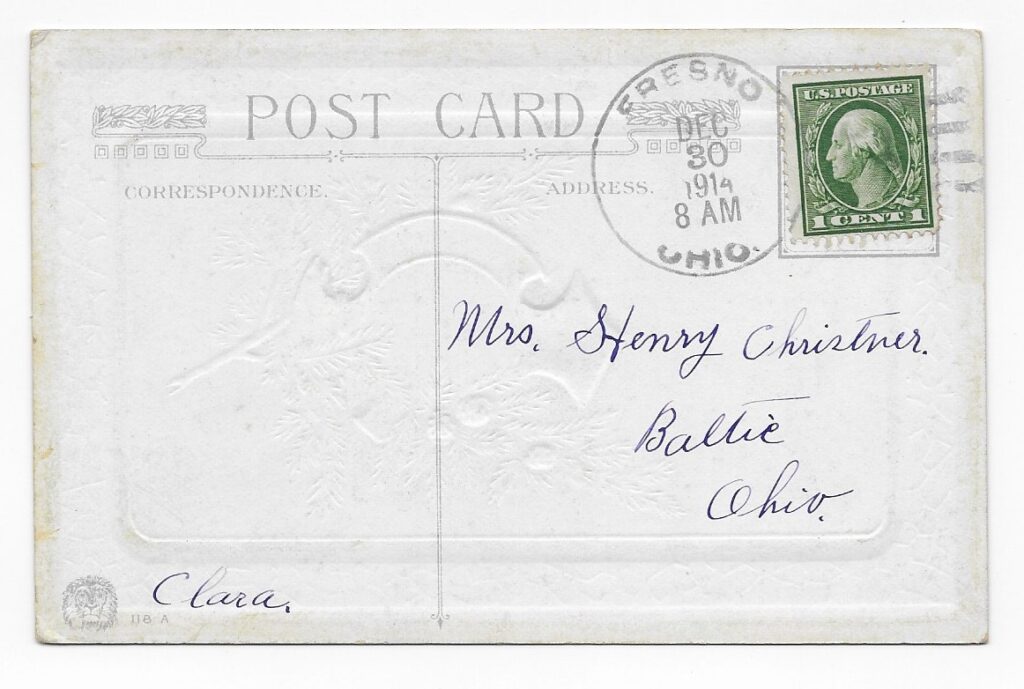 POST CARD
CORRESPONDENCE.
ADDRESS.
FRESNO
DEC
30
1914
8 AM
OHIO.
U.S. POSTAGE
1 CENT 1
Mrs. Henry Christner.
Baltic
Ohio.
Clara.
118 A